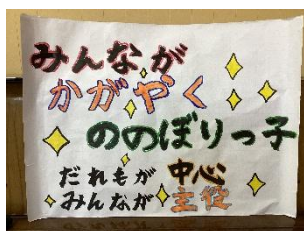 みんなが
かがやく
ののぼりっ子
だれもが 中心
みんなが 主役